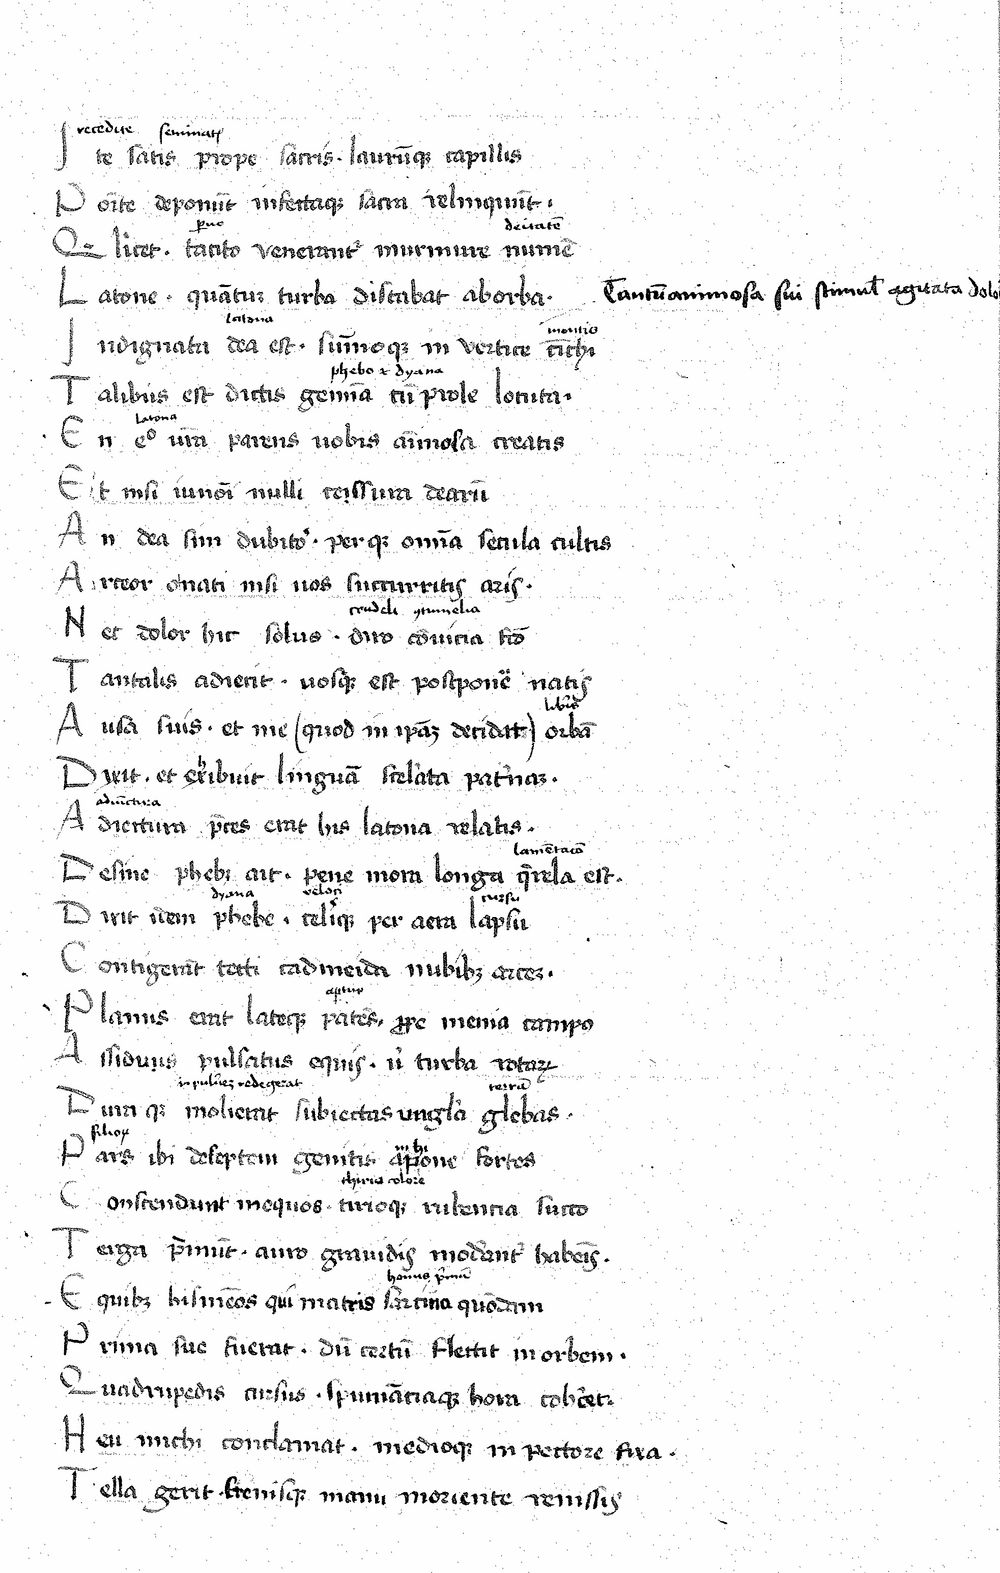 recedite seminatis
Ite satis prope sacris. laurūqꝫ capillis
Poīte deponūt infectaqꝫ sacra relinquūt.
deitatē
Qꝫ licet. tacito venerant᷑ murmure numē
Latone. quātuꝫ turba distabat aborba. Tantū animosa sui stimul' agitata
latona montis
Indignata dea est. sūmoqꝫ in vertice cīthi
phebo ⁊ dyana
Talibus est dictis gemīa cū prole locuta.
Latona
En eº ur̄a parens uobis aīmosa creatis
Et nisi iunōi nulli cessura dearū
An dea sim dubitoʳ. perqꝫ omīa secula cultis
Arceor o nati nisi uos succurritis aris.
crudeli ɔtumelia
Net dolor hic solus. diro cōuicia fcō
Tantalis adiecit. uosqꝫ est postponeʳe natis
libʳis
Ausa suis. et me (quod in ip̄aꝫ decidat) orbā
Dixit. et exʰibuit linguā scelʳata patʳnaꝫ.
adiūctura
Adiectura p̄ces erat his latona relatis.
lamētacō
Desine phebꝫ ait. pene mora longa q̄rela est.
dyana veloci cursu
Dixit idem phebe. celʳiqꝫ per aera lapsu
Contigerāt tecti cadmeida nubibꝫ arceꝫ.
aptus
Planus erat lateqꝫ patēs. ꝓpe menia campo
Assiduus pulsatus equis. ū turba rotaꝝ
in puluēꝫ redegerat terrā
Duraqꝫ molierat subiectas ungʳla glebas.
filioꝝ
Pars ibi deseptem genitis amphione fortes
thirio colore
Conscendunt inequos. tirioqꝫ rubentia succo
Terga p̄mūt. auro grauidis modʳant᷑ habeīs.
Equibꝫ hismēos qui matris sarcina quōdam
Prima sue fuerat. dū certū flectit in orbem.
Quadrupedis cursus. spumātiaqꝫ hora cohʳcet.
Heu michi conclamat. medioqꝫ in pectore fixa.
Tella gerit frenisqꝫ manu moriente remissis